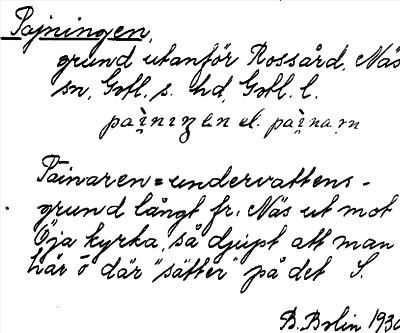 Pajningen,
grund utanför Rossård, Näs
sn, Gotl. s. hd, Gotl. l.
el.
Päinaren = undervattens-
grund långt fr. Näs ut mot
Öja kyrka, så djupt att man
här o där "sätter" på det S.
B. Bolin 1930